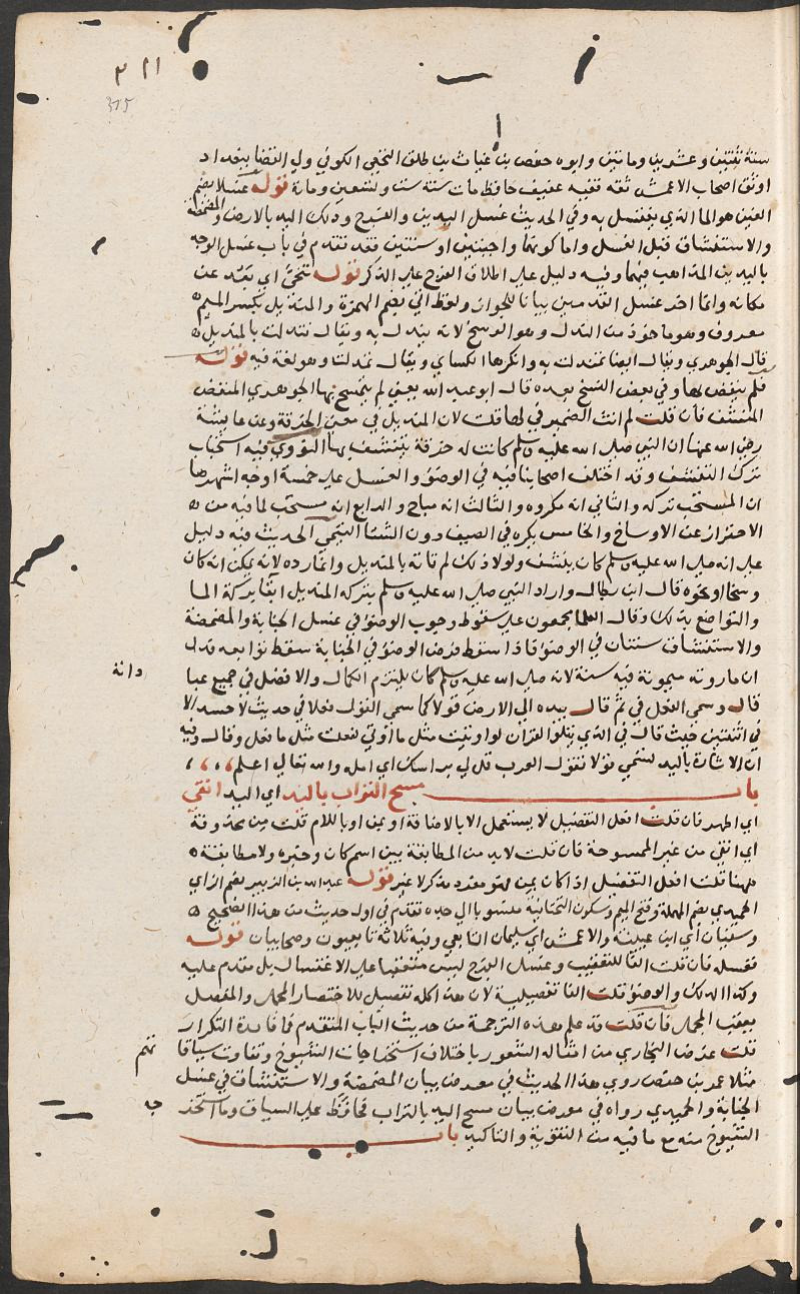 ٣١١
315
سنة ثنتين وعشرين ومايتين وابوه حفص بن غياث بن طلق النخعي الكوفي ولي القضا ببغداد
اوثق اصحاب الاعمش ثقه فقيه عفيف حافظ مات سنة ست وتسعين ومائة قوله غسلا بضم
الغين هو الما الذي يغتسل به وفي الحديث غسل اليدين والفرج ودلك اليد بالارض والمضمضة
والاستنشاق قبل الغسل واما كونهما واجبتين او سنتين فقد تقدم في باب غسل الوجه
باليدين المذاهب فيهما وفيه دليل على اطلاق الفرج على الذكر قوله تنحى اي بعد عن
مكانه وانما اخر غسل القدمين بيانا للجواز ولفظ اتي بضم الهمزة والمنديل بكسر الميم ه
معروف وهو ماخوذ من الندل وهو الوسخ لانه يندل به ويقال تندلت بالمنديل ه
قال الجوهري ويقال ايضا تمندلت به وانكرها الكساي ويقال تمدلت وهو لغة فيه قوله
فلم ينفض بها وفي بعض النسخ بعده قال ابو عبد الله يعني لم يتمسح بها الجوهري المنفض
المنشف فان قلت لم انث الضمير في لها قلت لان المنديل في معنى الخرقة وعن عايشة
رضي الله عنها ان النبي صلى الله عليه وسلم كانت له خرقة يتنشف بها النووي فيه استحباب
ترك التنشف وقد اختلف اصحابنا فيه في الوضوء والغسل على خمسة اوجه اشهرها
ان المستحب تركه والثاني انه مكروه والثالث انه مباح والرابع انه مستحب لما فيه من ه
الاحتراز عن الاوساخ والخامس يكره في الصيف دون الشتا التيمي الحديث فيه دليل
على انه صلى الله عليه وسلم كان ينشف ولولا ذلك لم تاته بالمنديل وانما رده لانه يمكن انه كان
وسخا او نحوه قال ابن بطال واراد النبي صلى الله عليه وسلم بتركه المنديل ابقا بركة الما
والتواضع بذلك وقال العلما يجمعون على سقوط وجوب الوضوء في غسل الجنابة والمضمضة
والاستنشاق سنتان في الوضوء فاذا سقط فرض الوضوء في الجنابة سقط توابعه فدل
ان ما روته ميمونة فيه سنة لانه صلى الله عليه وسلم كان يلتزم الكمال والافضل في جميع عبا
داته
قال وسمي الفعل في ثم قال بيده الى الارض قولا كما سمي القول فعلا في حديث لا حسد الا
في اثنتين حيث قال في الذي يتلوا القران لو اوتيت مثل ما اوتي لفعلت مثل ما فعل وقال وفيه
ان الاشارة باليد تسمي قولا تقول العرب قل لي براسك اي امله والله تعالى اعلم
باب مسح التراب باليد اي اليد انقي
اي اطهر فان قلت افعل التفضيل لا يستعمل الا بالاضافة او بمن او باللام قلت من محذوفة
اي انقي من غير الممسوحة فان قلت لا بد من المطابقة بين اسم كان وخبره ولا مطابقة ه
ههنا قلت افعل التفضيل اذا كان بمن فهو مفرد مذكر لا غير قوله عبد الله بن الزبير بضم الزاي
الحميدي بضم المهملة وفتح الميم وسكون التحتانية منسوبا الى جده تقدم في اول حديث من هذا الصحيح ه
وسفيان اي ابن عيينة والاعمش اي سليمان التابعي وفيه ثلاثة تابعيون وصحابيان قوله
فغسله فان قلت الفا للتعقيب وغسل الفرج ليس متعقبا على الاغتسال بل مقدم عليه
وكذا الدلك والوضوء قلت الفا تفصيلية لان هذا كله تفصيل للاختصار المجمل والمفصل
يعقب المجمل فان قلت قد علم هذه الترجمة من حديث الباب المتقدم فما فائدة التكرار
قلت غرض البخاري من امثاله الشعور باختلاف استخراجات الشيوخ وتفاوت سياقا
تهم
مثلا عمر بن حفص روي هذا الحديث في معرض بيان المضمضة والاستنشاق في غسل
الجنابة والحميدي رواه في معرض بيان مسح اليد بالتراب فحافظ على السياق وما استخر
جه
الشيوخ منه مع ما فيه من التقوية والتاكيد باب